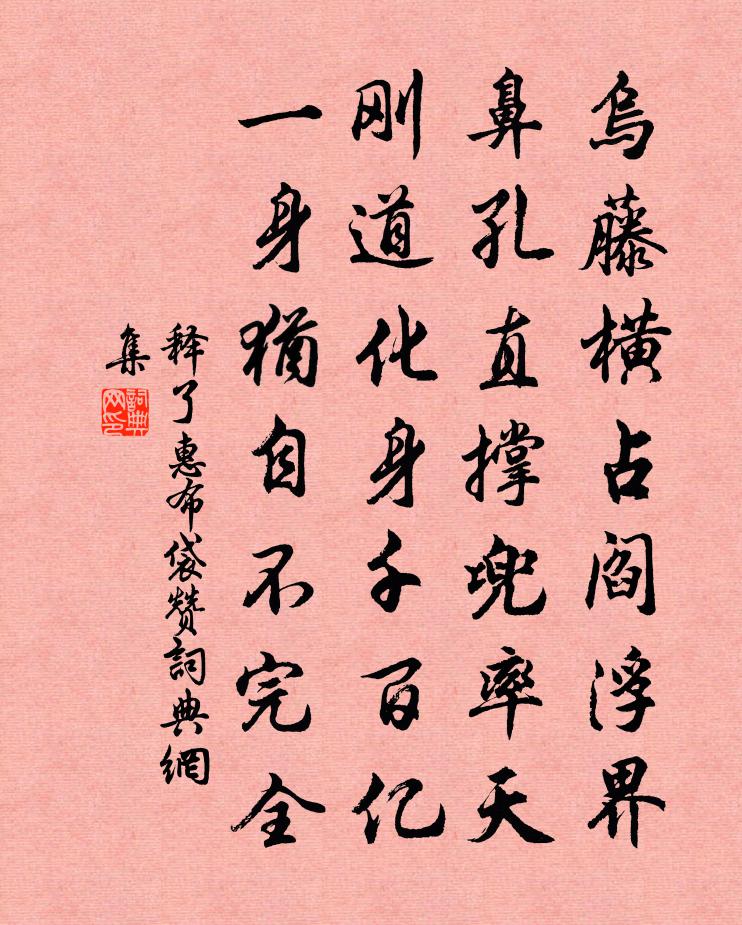 烏藤橫占閻浮界
鼻孔直撐兜率天
刚道化身千百亿
一身猶自不完全
释了惠布袋赞詞典網
集
詞典
网印